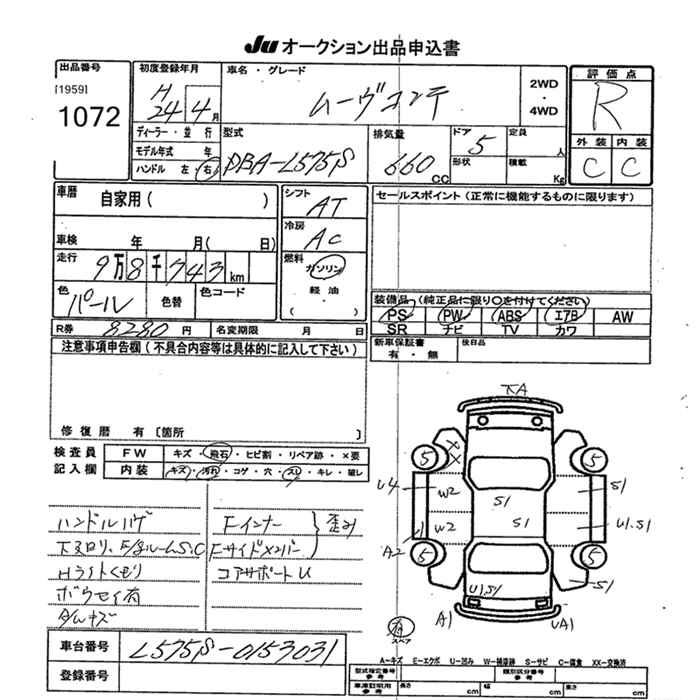 JU オークション出品申込書
出品番号
[1959]
1072
初度登録年月
H24 4月
ディーラー・並 行
モデル年式 年
ハンドル 左 右
車名・グレード
ムーヴコンテ
2WD
・
4WD
評価点
R
外装 内装
C C
型式
DBA-L575S
排気量
660 CC
ドア
5
形状
定員
人
積載
Kg
車歴
自家用( )
車検 年 月( 日)
走行
9万8千743km
色
パール
色替
色コード
シフト
AT
冷房
AC
燃料
ガソリン
軽油
( )
セールスポイント(正常に機能するものに限ります)
装備品(純正品に限り〇を付けてください)
PS PW ABS エアB AW
SR ナビ TV カワ
新車保証書
有・無
後日品
R券 8280 円 名変期限 月 日
注意事項申告欄(不具合内容等は具体的に記入して下さい)
修復歴 有 〔箇所
検査員
記入欄
FW キズ・飛石・ヒビ割・リペア跡・×要
内装 キズ・汚れ・コゲ・穴・スレ・キレ・破レ
ハンドルハゲ
下又ロリ、F/Sルーム S.C
Hライトくもり
ボウセイ有
タルキズ
Fインナー
Fサイドメンバー
歪み
コアサポートU
車台番号
L575S-0153031
登録番号
大A
XX
5 5
U4 W2 S1 S1
W2 S1 U1.S1
A2
5 5
U1.S1 S1
A1 UA1
有
スペア
A-キズ E-エクボ U-凹み W-補修跡 S-サビ C-腐食 XX-交換済
型式指定番号
参考
類別区分番号
参考
車庫証明用
参考
長さ cm 幅 cm 高さ cm